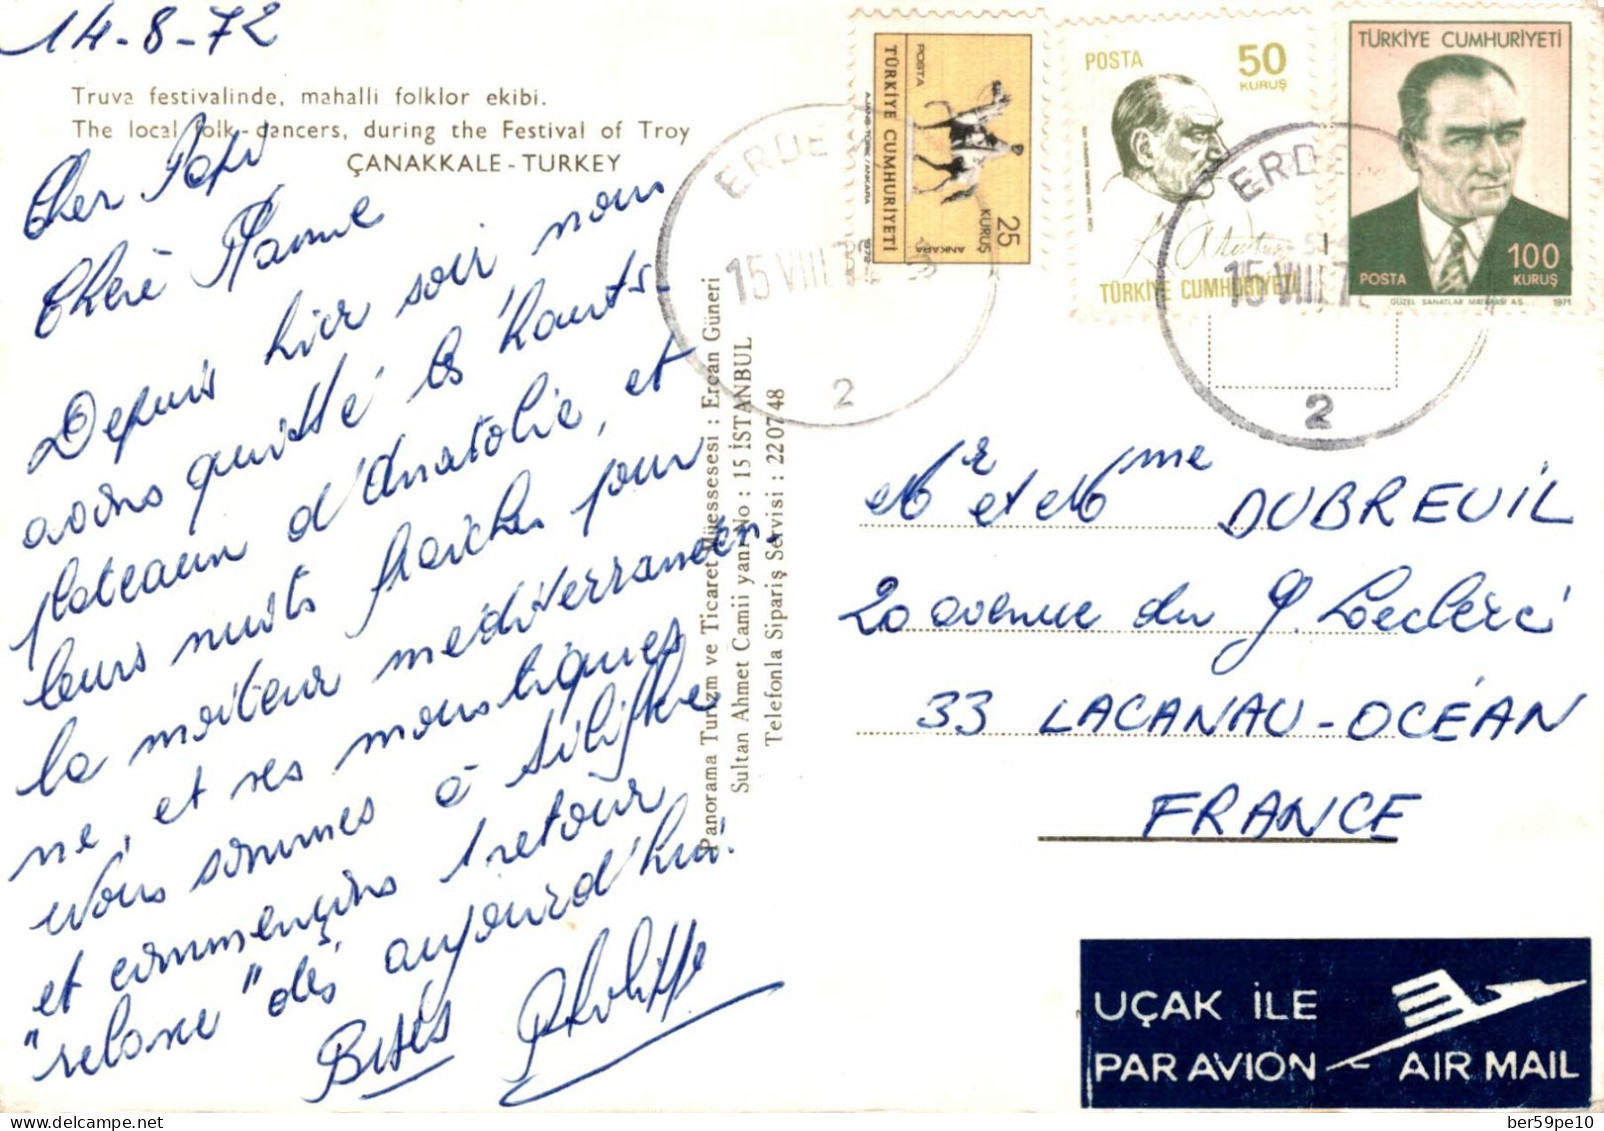 14-8-72
Truva festivalinde, mahalli folklor ekibi.
The local folk-dancers, during the Festival of Troy
ÇANAKKALE - TURKEY
Cher Papi
Chère Mamie
Depuis hier soir nous
avons quitté les hauts
plateaux d'Anatolie, et
leurs nuits fraiches pour
la moiteur méditerranéen-
ne, et ses moustiques
Nous sommes à Silifke
et commençons 1 retour
"relaxe" dès aujourd'hui.
Bises Philippe
Panorama Turizm ve Ticaret Müessesesi : Ercan Güneri
Sultan Ahmet Camii yanı No : 15 İSTANBUL
Telefonla Sipariş Servisi : 22 07 48
POSTA
TÜRKİYE CUMHURİYETİ
AJANS-TÜRK/ANKARA 1972
25
KURUŞ
ANKARA
POSTA
50
KURUŞ
K. Atatürk
TÜRKİYE CUMHURİYETİ
TÜRKİYE CUMHURİYETİ
100
KURUŞ
POSTA
GÜZEL SANATLAR MATBAASI A.Ş. 1971
ERDE
15 VIII
2
ERDE
15 VIII 7
2
Mr et Mme DUBREUIL
20 avenue du G. Leclerc
33 LACANAU-OCÉAN
FRANCE
UÇAK İLE
PAR AVION AIR MAIL
ber59pe10